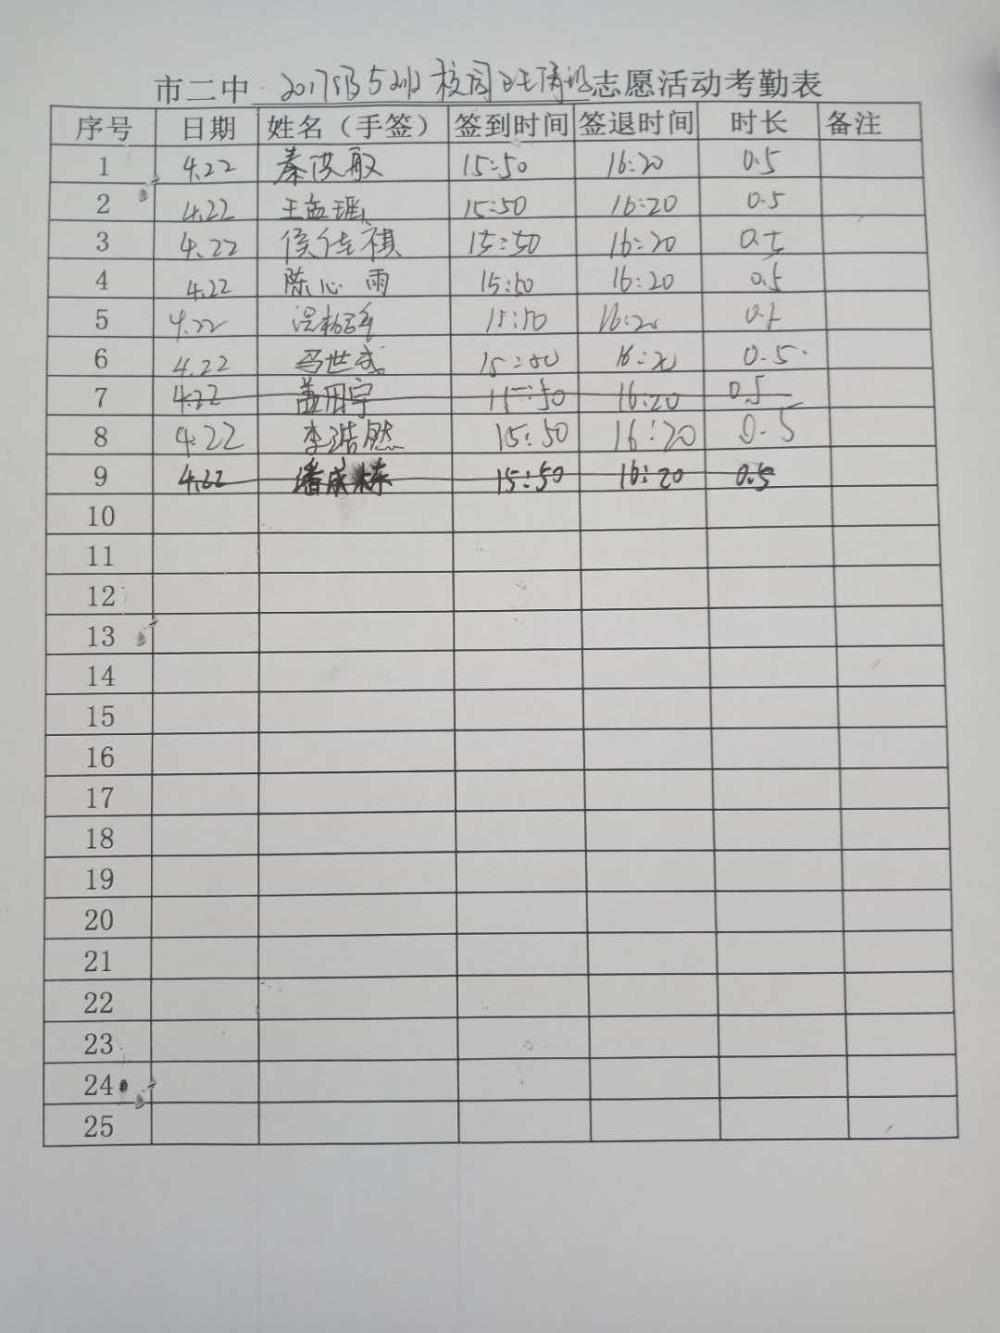 市二中 2017级5班 校园 志愿活动考勤表
序号 日期 姓名（手签） 签到时间 签退时间 时长 备注
1 4.22 秦俊毅 15:50 16:20 0.5
2 4.22 王孟瑶 15:50 16:20 0.5
3 4.22 侯佳祺 15:50 16:20 0.5
4 4.22 陈心雨 15:50 16:20 0.5
5 4.22 15:50 16:20 0.5
6 4.22 冯世成 15:50 16:20 0.5
7 4.22 15:50 16:20 0.5
8 4.22 李浩然 15:50 16:20 0.5
9 4.22 潘成栋 15:50 16:20 0.5
10
11
12
13
14
15
16
17
18
19
20
21
22
23
24
25